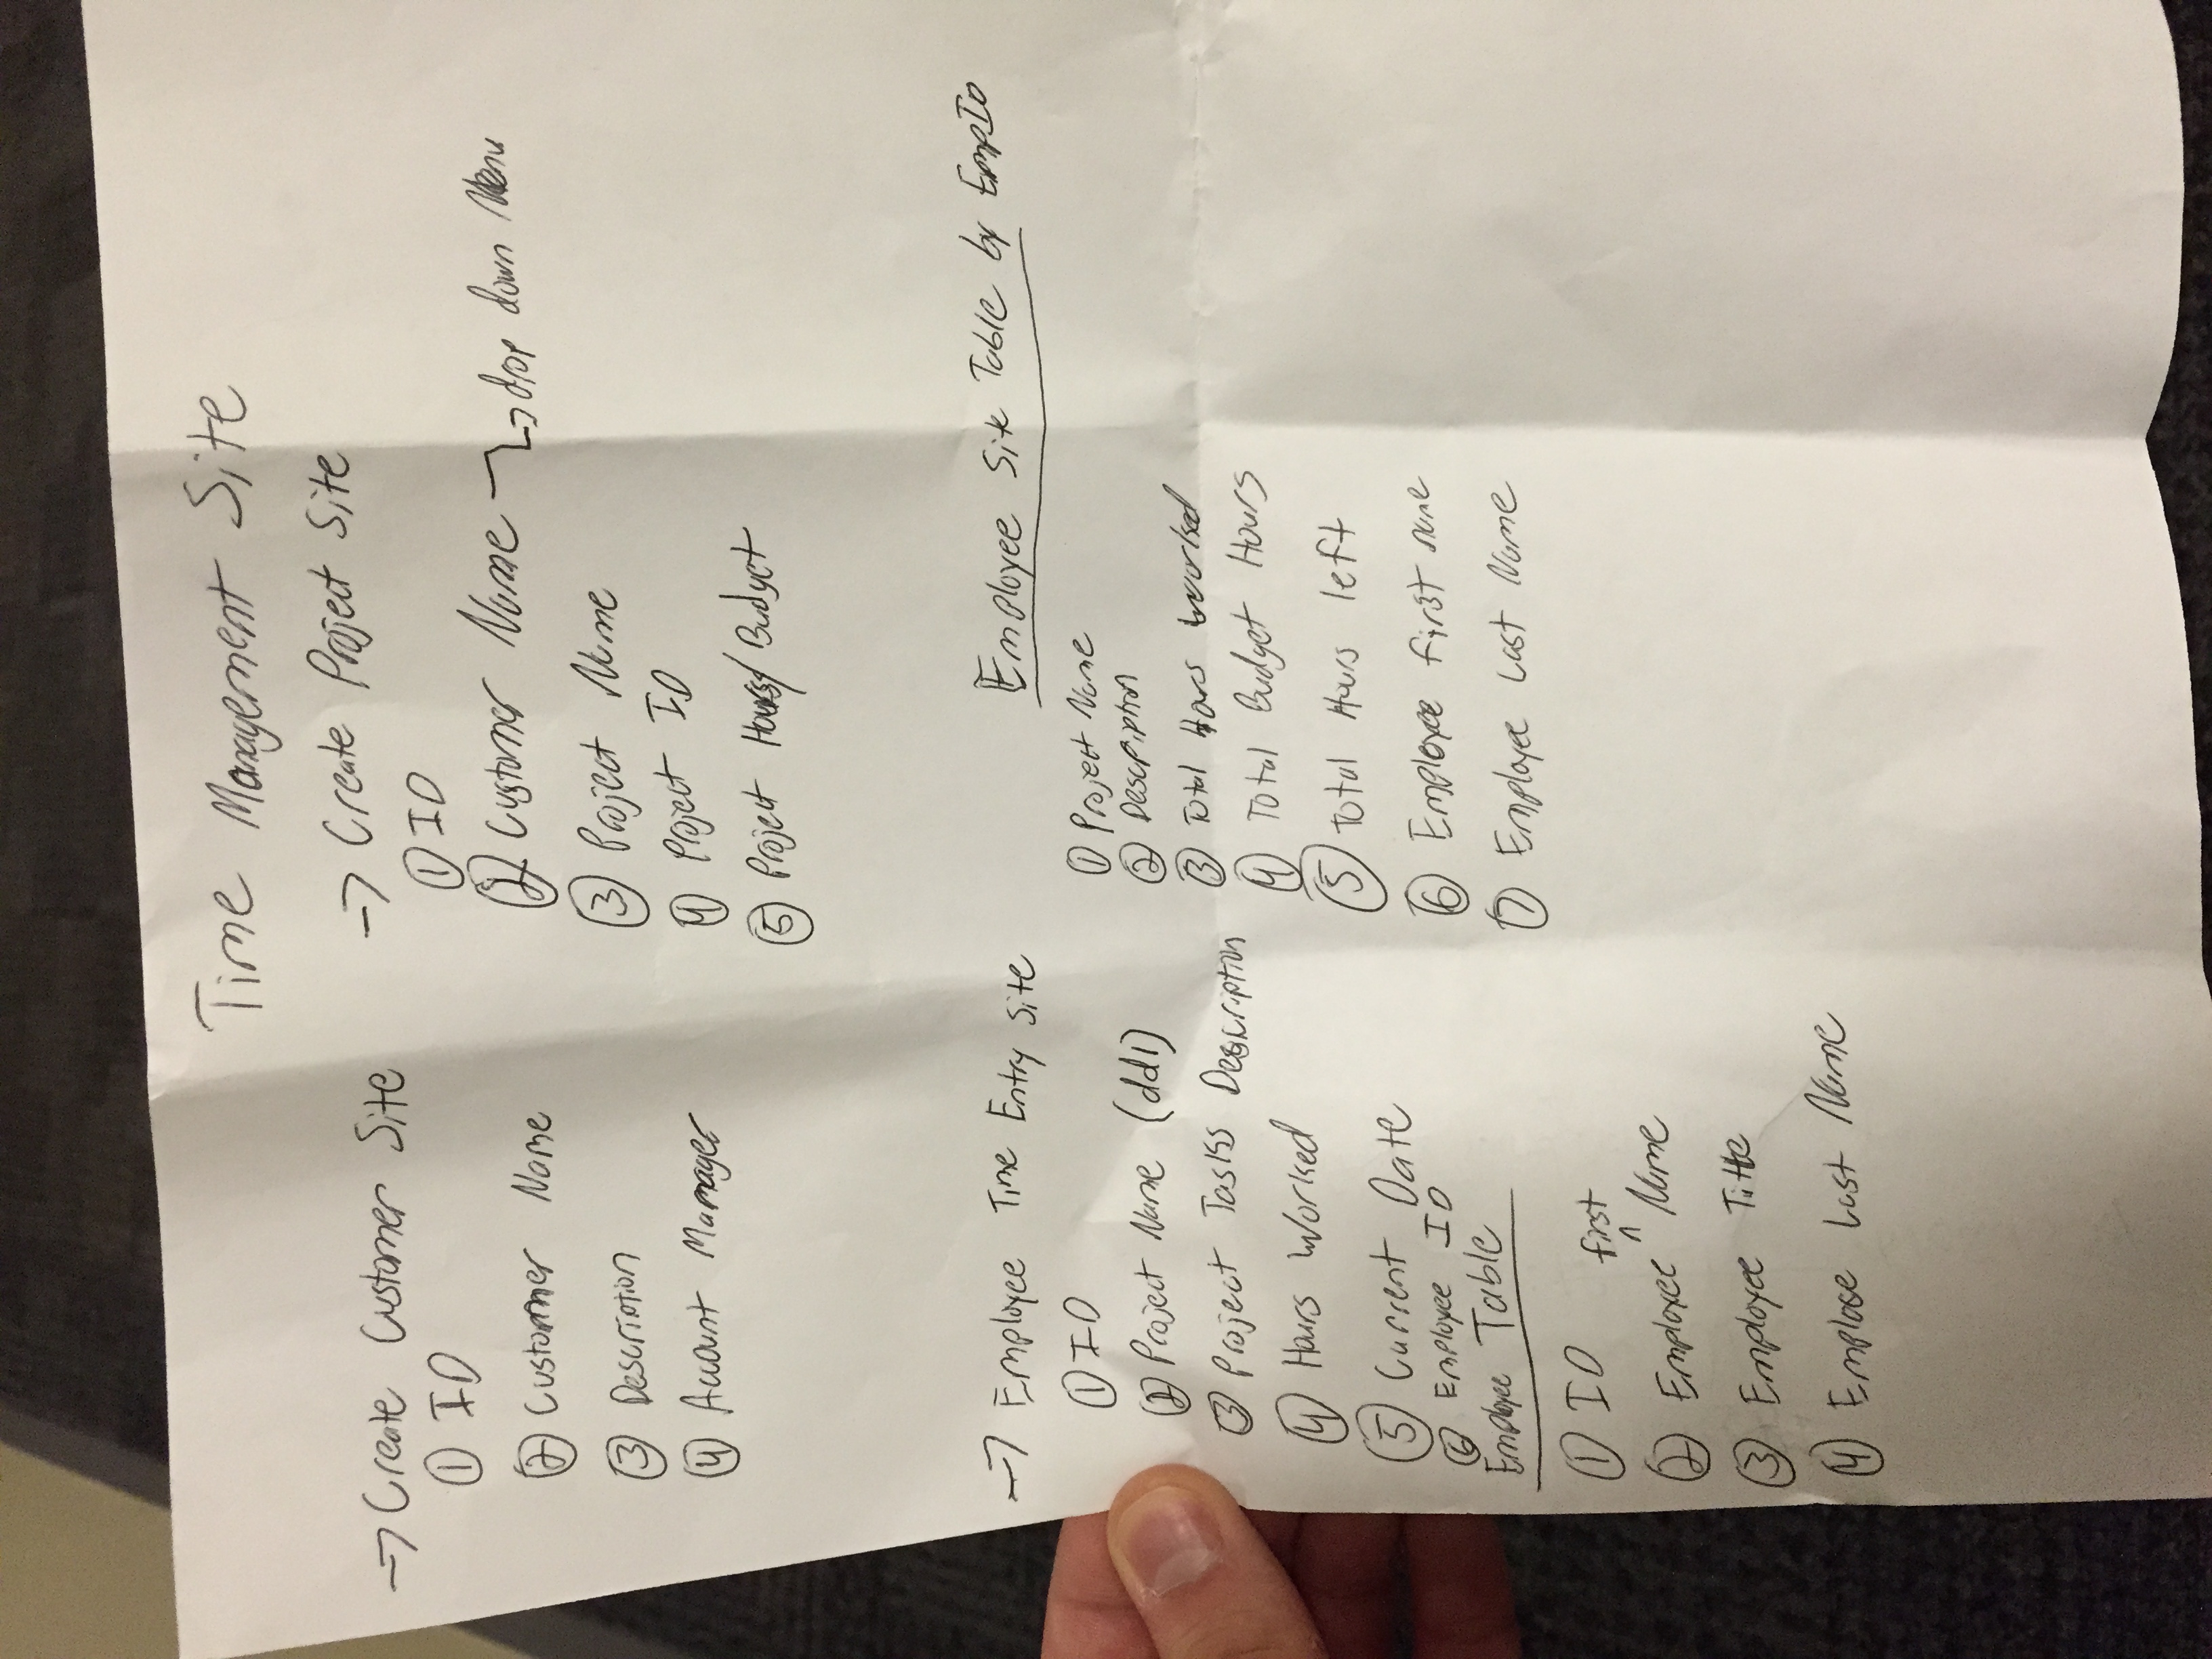 Time Management Site
→ Create Customer Site
① ID
② Customer Name
③ Description
④ Account Manager
→ Create Project Site
① ID
② Customer Name → drop down Menu
③ Project Name
④ Project ID
⑤ Project Hours/Budget
→ Employee Time Entry Site
① ID
② Project Name (ddl)
③ Project Tasks Description
④ Hours Worked
⑤ Current Date
⑥ Employee ID
Employee Table
① ID
② Employee first Name
③ Employee Title
④ Employee Last Name
Employee Site Table by EmpID
① Project Name
② Description
③ Total Hours worked
④ Total Budget Hours
⑤ Total Hours left
⑥ Employee first name
⑦ Employee Last Name